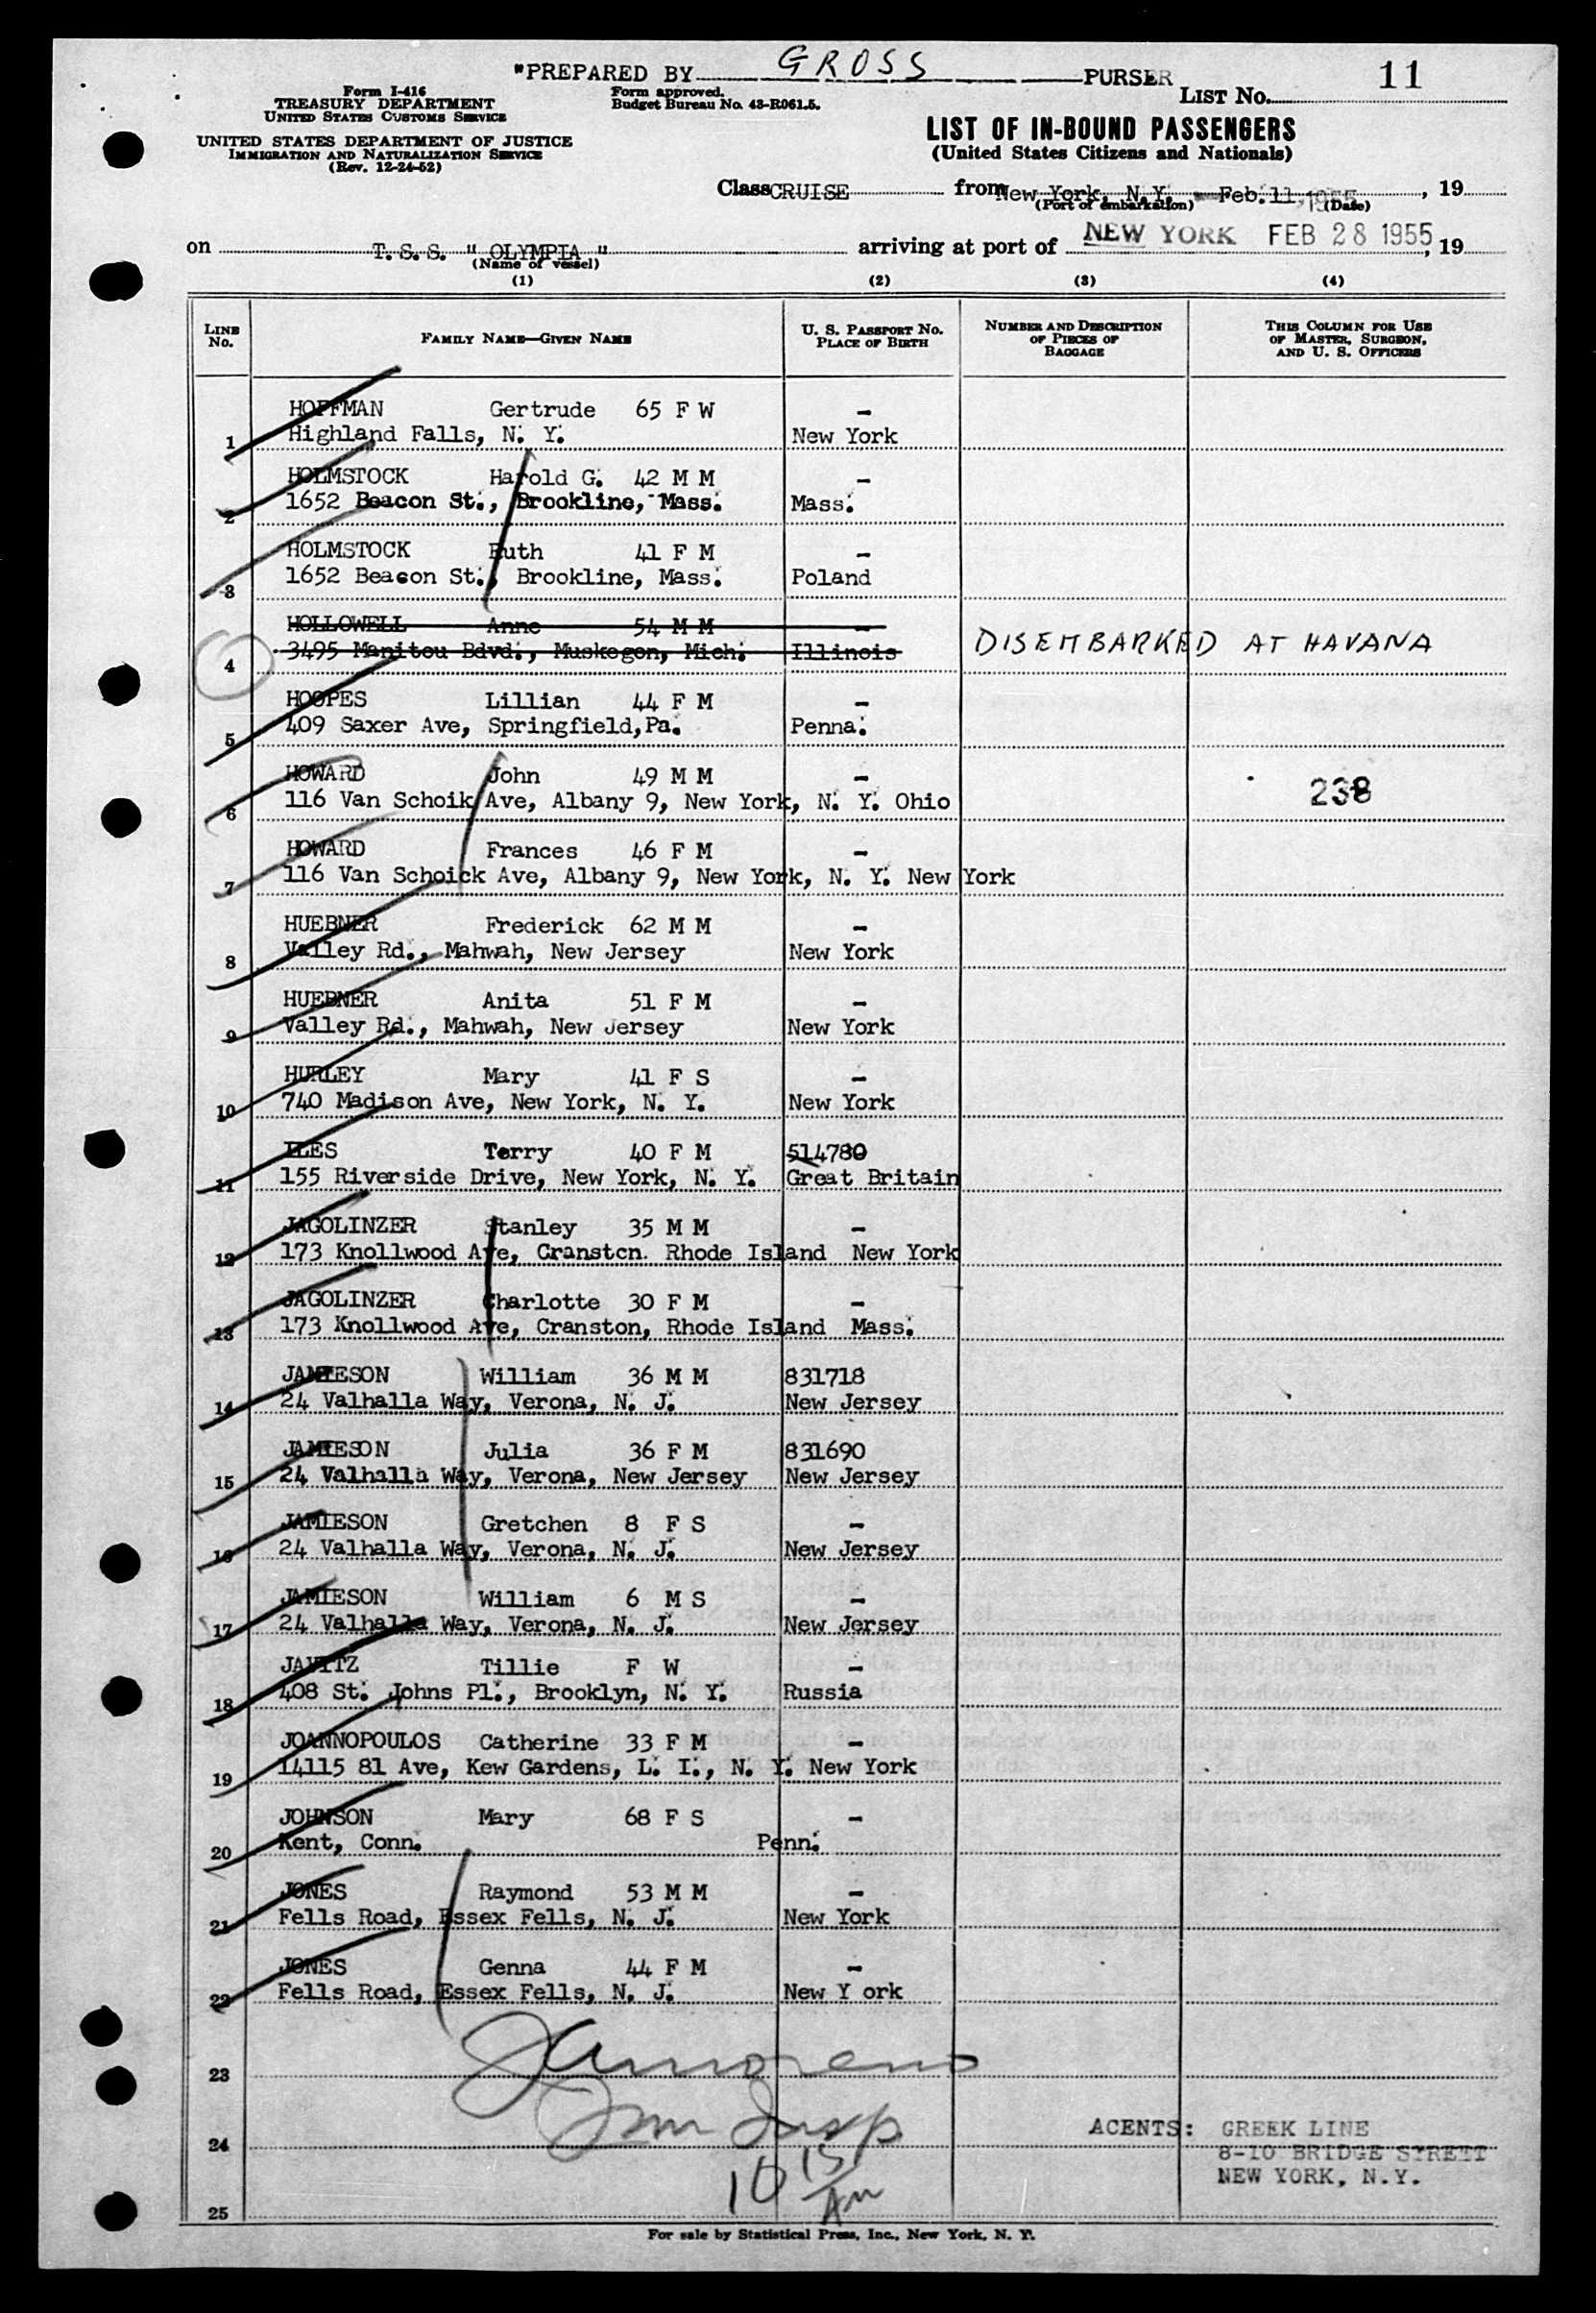 "PREPARED BY GROSS PURSER
Form I-416
TREASURY DEPARTMENT
UNITED STATES CUSTOMS SERVICE
UNITED STATES DEPARTMENT OF JUSTICE
IMMIGRATION AND NATURALIZATION SERVICE
(Rev. 12-24-52)
Form approved.
Budget Bureau No. 43-R061.5.
LIST NO. 11
LIST OF IN-BOUND PASSENGERS
(United States Citizens and Nationals)
Class CRUISE from New York, N.Y. - Feb. 11, 1955, 19
(Port of embarkation) (Date)
on T. S. S. " OLYMPIA " arriving at port of NEW YORK FEB 28 1955, 19
(Name of vessel)
(1) (2) (3) (4)
LINE NO. FAMILY NAME—GIVEN NAME U. S. PASSPORT NO. PLACE OF BIRTH NUMBER AND DESCRIPTION OF PIECES OF BAGGAGE THIS COLUMN FOR USE OF MASTER, SURGEON, AND U. S. OFFICERS
HOFFMAN Gertrude 65 F W -
1 Highland Falls, N. Y. New York
HOLMSTOCK Harold G. 42 M M -
2 1652 Beacon St., Brookline, Mass. Mass.
HOLMSTOCK Ruth 41 F M -
3 1652 Beacon St., Brookline, Mass. Poland
HOLLOWELL Anne 54 M M -
4 3495 Manitou Bdvd., Muskegon, Mich. Illinois DISEMBARKED AT HAVANA
HOOPES Lillian 44 F M -
5 409 Saxer Ave, Springfield, Pa. Penna.
HOWARD John 49 M M - 238
6 116 Van Schoik Ave, Albany 9, New York, N. Y. Ohio
HOWARD Frances 46 F M -
7 116 Van Schoick Ave, Albany 9, New York, N. Y. New York
HUEBNER Frederick 62 M M -
8 Valley Rd., Mahwah, New Jersey New York
HUEBNER Anita 51 F M -
9 Valley Rd., Mahwah, New Jersey New York
HURLEY Mary 41 F S -
10 740 Madison Ave, New York, N. Y. New York
ILES Terry 40 F M 514780
11 155 Riverside Drive, New York, N. Y. Great Britain
JAGOLINZER Stanley 35 M M -
12 173 Knollwood Ave, Cranstcn. Rhode Island New York
JAGOLINZER Charlotte 30 F M -
13 173 Knollwood Ave, Cranston, Rhode Island Mass.
JAMIESON William 36 M M 831718
14 24 Valhalla Way, Verona, N. J. New Jersey
JAMIESON Julia 36 F M 831690
15 24 Valhalla Way, Verona, New Jersey New Jersey
JAMIESON Gretchen 8 F S -
16 24 Valhalla Way, Verona, N. J. New Jersey
JAMIESON William 6 M S -
17 24 Valhalla Way, Verona, N. J. New Jersey
JAVITZ Tillie F W -
18 408 St. Johns Pl., Brooklyn, N. Y. Russia
JOANNOPOULOS Catherine 33 F M -
19 14115 81 Ave, Kew Gardens, L. I., N. Y. New York
JOHNSON Mary 68 F S -
20 Kent, Conn. Penn.
JONES Raymond 53 M M -
21 Fells Road, Essex Fells, N. J. New York
JONES Genna 44 F M -
22 Fells Road, Essex Fells, N. J. New Y ork
23
Imm Insp
24
10 15 AM
25
ACENTS: GREEK LINE
8-10 BRIDGE STREET
NEW YORK, N.Y.
For sale by Statistical Press, Inc., New York, N. Y.